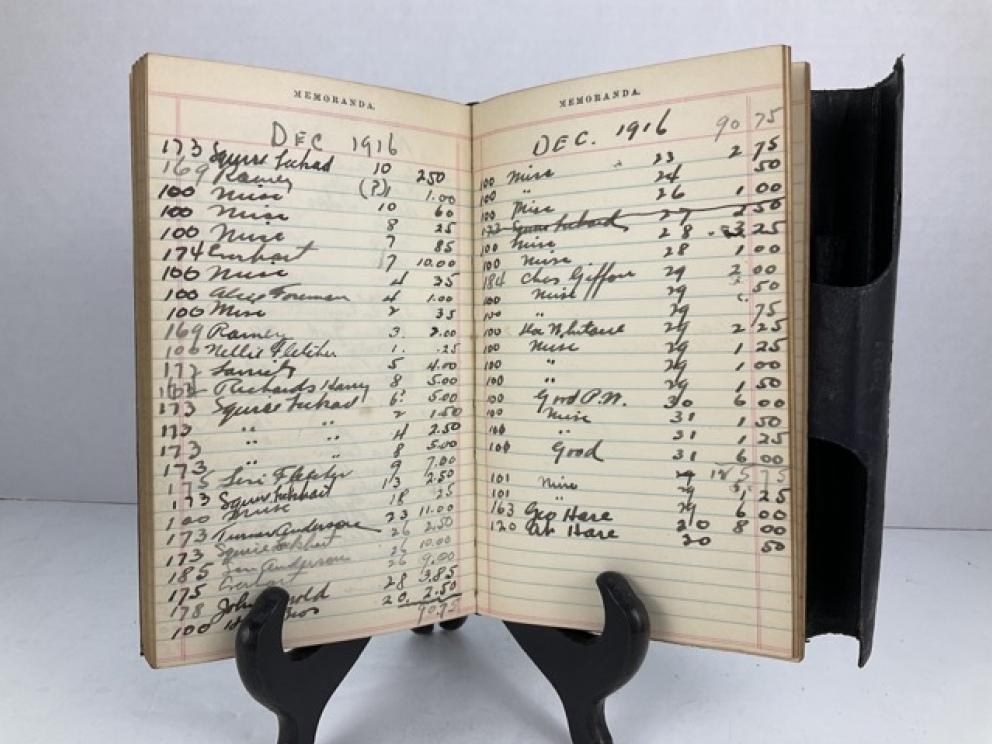 MEMORANDA.
DEC 1916
173 Squire 10 2.50
169 Ramey (?) 1 1.00
100 Mise 10 60
100 Mise 8 25
100 Mise 7 85
174 Everhart 7 10.00
100 Mise 4 35
100 Alex Foreman 4 1.00
100 Mise 2 35
169 Ramey 3. 2.00
100 Nellie Fletcher 1. .25
172 5 4.00
Richards Harry 8 5.00
173 Squire 6 5.00
173 " " 2 1.50
173 " " 4 2.50
173 " " 8 5.00
175 Levi Fletcher 9 7.00
173 Squire 13 2.50
100 Mise 18 25
173 Turner Anderson 23 11.00
173 Squire 26 2.50
185 Anderson 26 10.00
175 Everhart 26 9.00
178 John 28 3.85
100 Bros 20 2.50
90.75
MEMORANDA.
DEC. 1916 90 75
100 Mise 23 2 75
100 " 24 50
100 Mise 26 1 00
Squire 27 2 50
100 Mise 28 3 25
100 Mise 28 1 00
184 Chas Giffon 29 2 00
100 Mise 29 50
100 " 29 75
100 29 2 25
100 Mise 29 1 25
100 " 29 1 00
100 " 29 1 50
100 Good P.W. 30 6 00
100 Mise 31 1 50
100 " 31 1 25
100 Good 31 6 00
125 75
101 Mise 29
101 " 29 1 25
163 Geo Hare 29 6 00
120 Hare 20 8 00
20 50